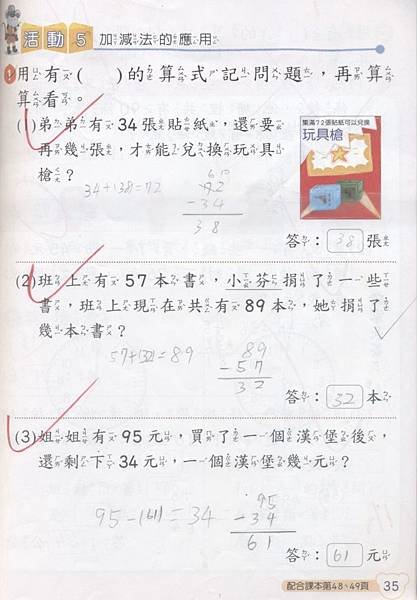 活動 5 加減法的應用
用有( )的算式記問題，再算
算看。
(1)弟弟有34張貼紙，還要
再幾張，才能兌換玩具
槍？
集滿72張貼紙可以兌換
玩具槍
34+(38)=72
72
-34
38
答：38張
(2)班上有57本書，小芬捐了一些
書，班上現在共有89本，她捐了
幾本書？
57+(32)=89
89
-57
32
答：32本
(3)姐姐有95元，買了一個漢堡後，
還剩下34元，一個漢堡幾元？
95-(61)=34
95
-34
61
答：61元
配合課本第48、49頁 35